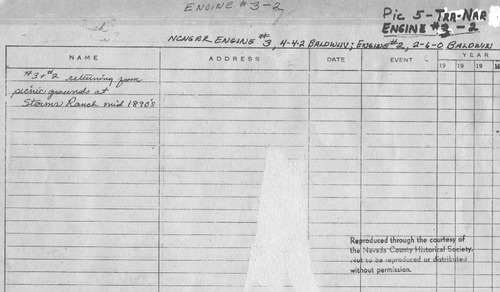 ENGINE #3-2
Pic 5-TRA-NAR
ENGINE #3-2
NCNGRR ENGINE #3, 4-4-2 BALDWIN; ENGINE #2, 2-6-0 BALDWIN
NAME ADDRESS DATE EVENT YEAR
19 19 19
#3 & #2 returning from
picnic grounds at
Storms Ranch mid 1890's
Reproduced through the courtesy of
the Nevada County Historical Society.
Not to be reproduced or distributed
without permission.